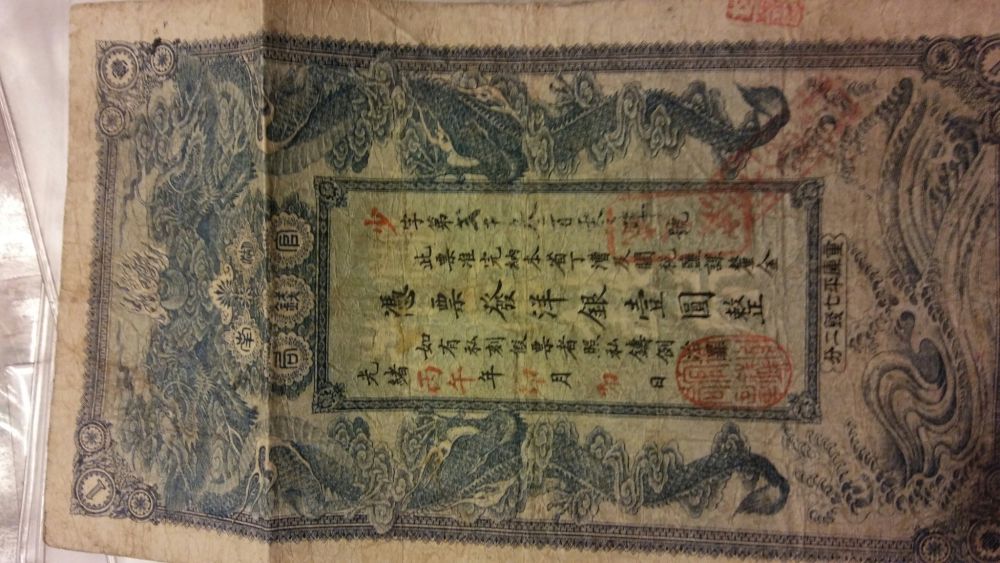 南
官錢局
字第
號
此票准完納本省丁漕及關稅鹽課釐金
憑票發洋銀壹圓整
如有私刻假票者照私鑄例
光緒丙午年
月
日
重庫平七錢二分
1